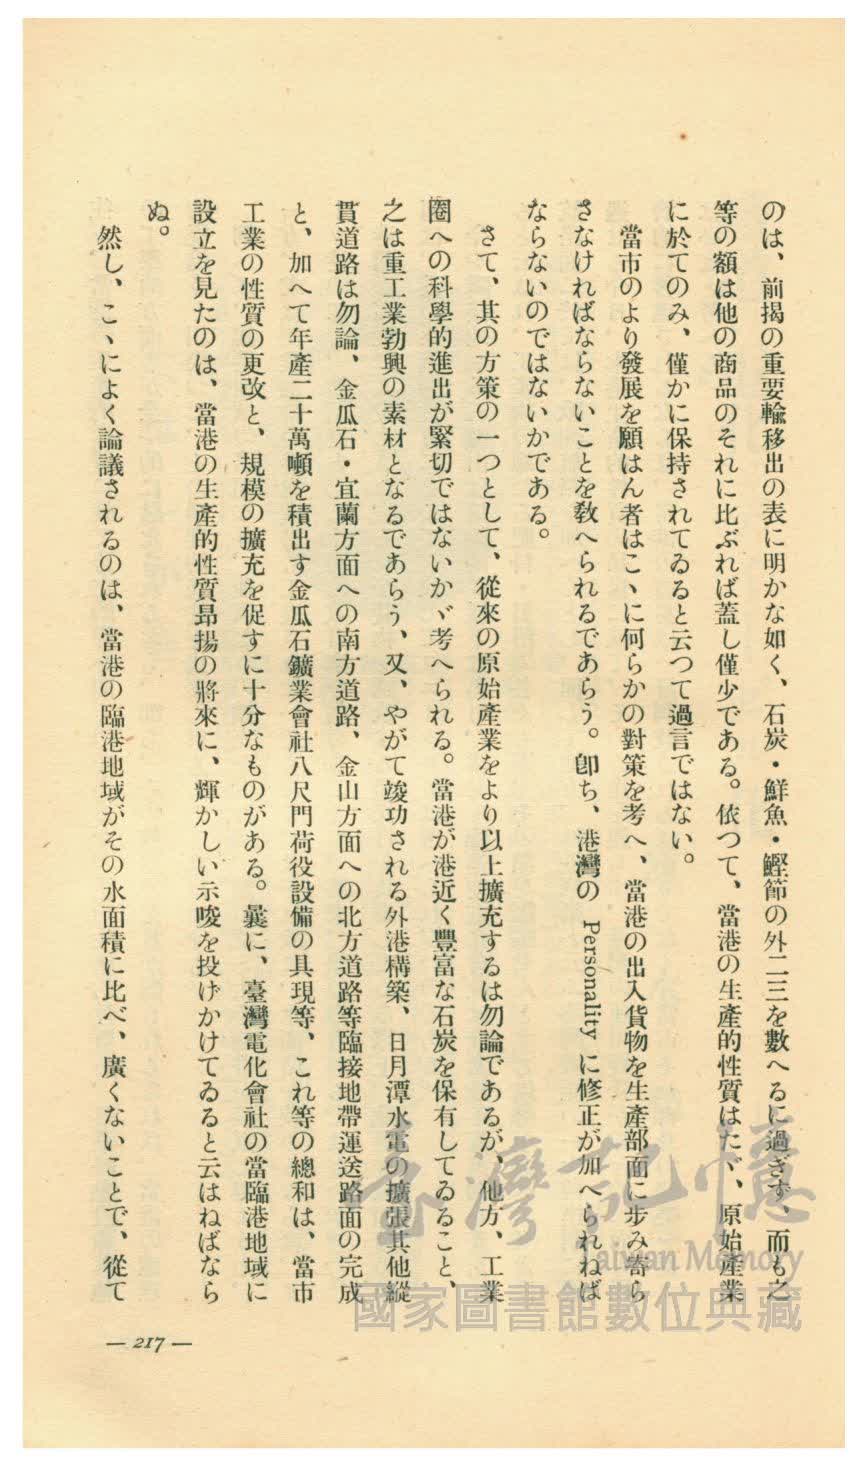 のは、前揭の重要輸移出の表に明かな如く、石炭・鮮魚・鰹節の外二三を數へるに過ぎず、而も之
等の額は他の商品のそれに比ぶれば蓋し僅少である。依つて、當港の生產的性質はたゞ、原始產業
に於てのみ、僅かに保持されてゐると云つて過言ではない。
當市のより發展を願はん者はこゝに何らかの對策を考へ、當港の出入貨物を生產部面に步み寄ら
さなければならないことを敎へられるであらう。卽ち、港灣の Personality に修正が加へられねば
ならないのではないかである。
さて、其の方策の一つとして、從來の原始產業をより以上擴充するは勿論であるが、他方、工業
圈への科學的進出が緊切ではないかゞ考へられる。當港が港近く豐富な石炭を保有してゐること、
之は重工業勃興の素材となるであらう、又、やがて竣功される外港構築、日月潭水電の擴張其他縱
貫道路は勿論、金瓜石・宜蘭方面への南方道路、金山方面への北方道路等臨接地帶運送路面の完成
と、加へて年產二十萬噸を積出す金瓜石鑛業會社八尺門荷役設備の具現等、これ等の總和は、當市
工業の性質の更改と、規模の擴充を促すに十分なものがある。曩に、臺灣電化會社の當臨港地域に
設立を見たのは、當港の生產的性質昻揚の將來に、輝かしい示唆を投げかけてゐると云はねばなら
ぬ。
然し、こゝによく論議されるのは、當港の臨港地域がその水面積に比べ、廣くないことで、從て
— 217 —
臺灣記憶
Taiwan Memory
國家圖書館數位典藏